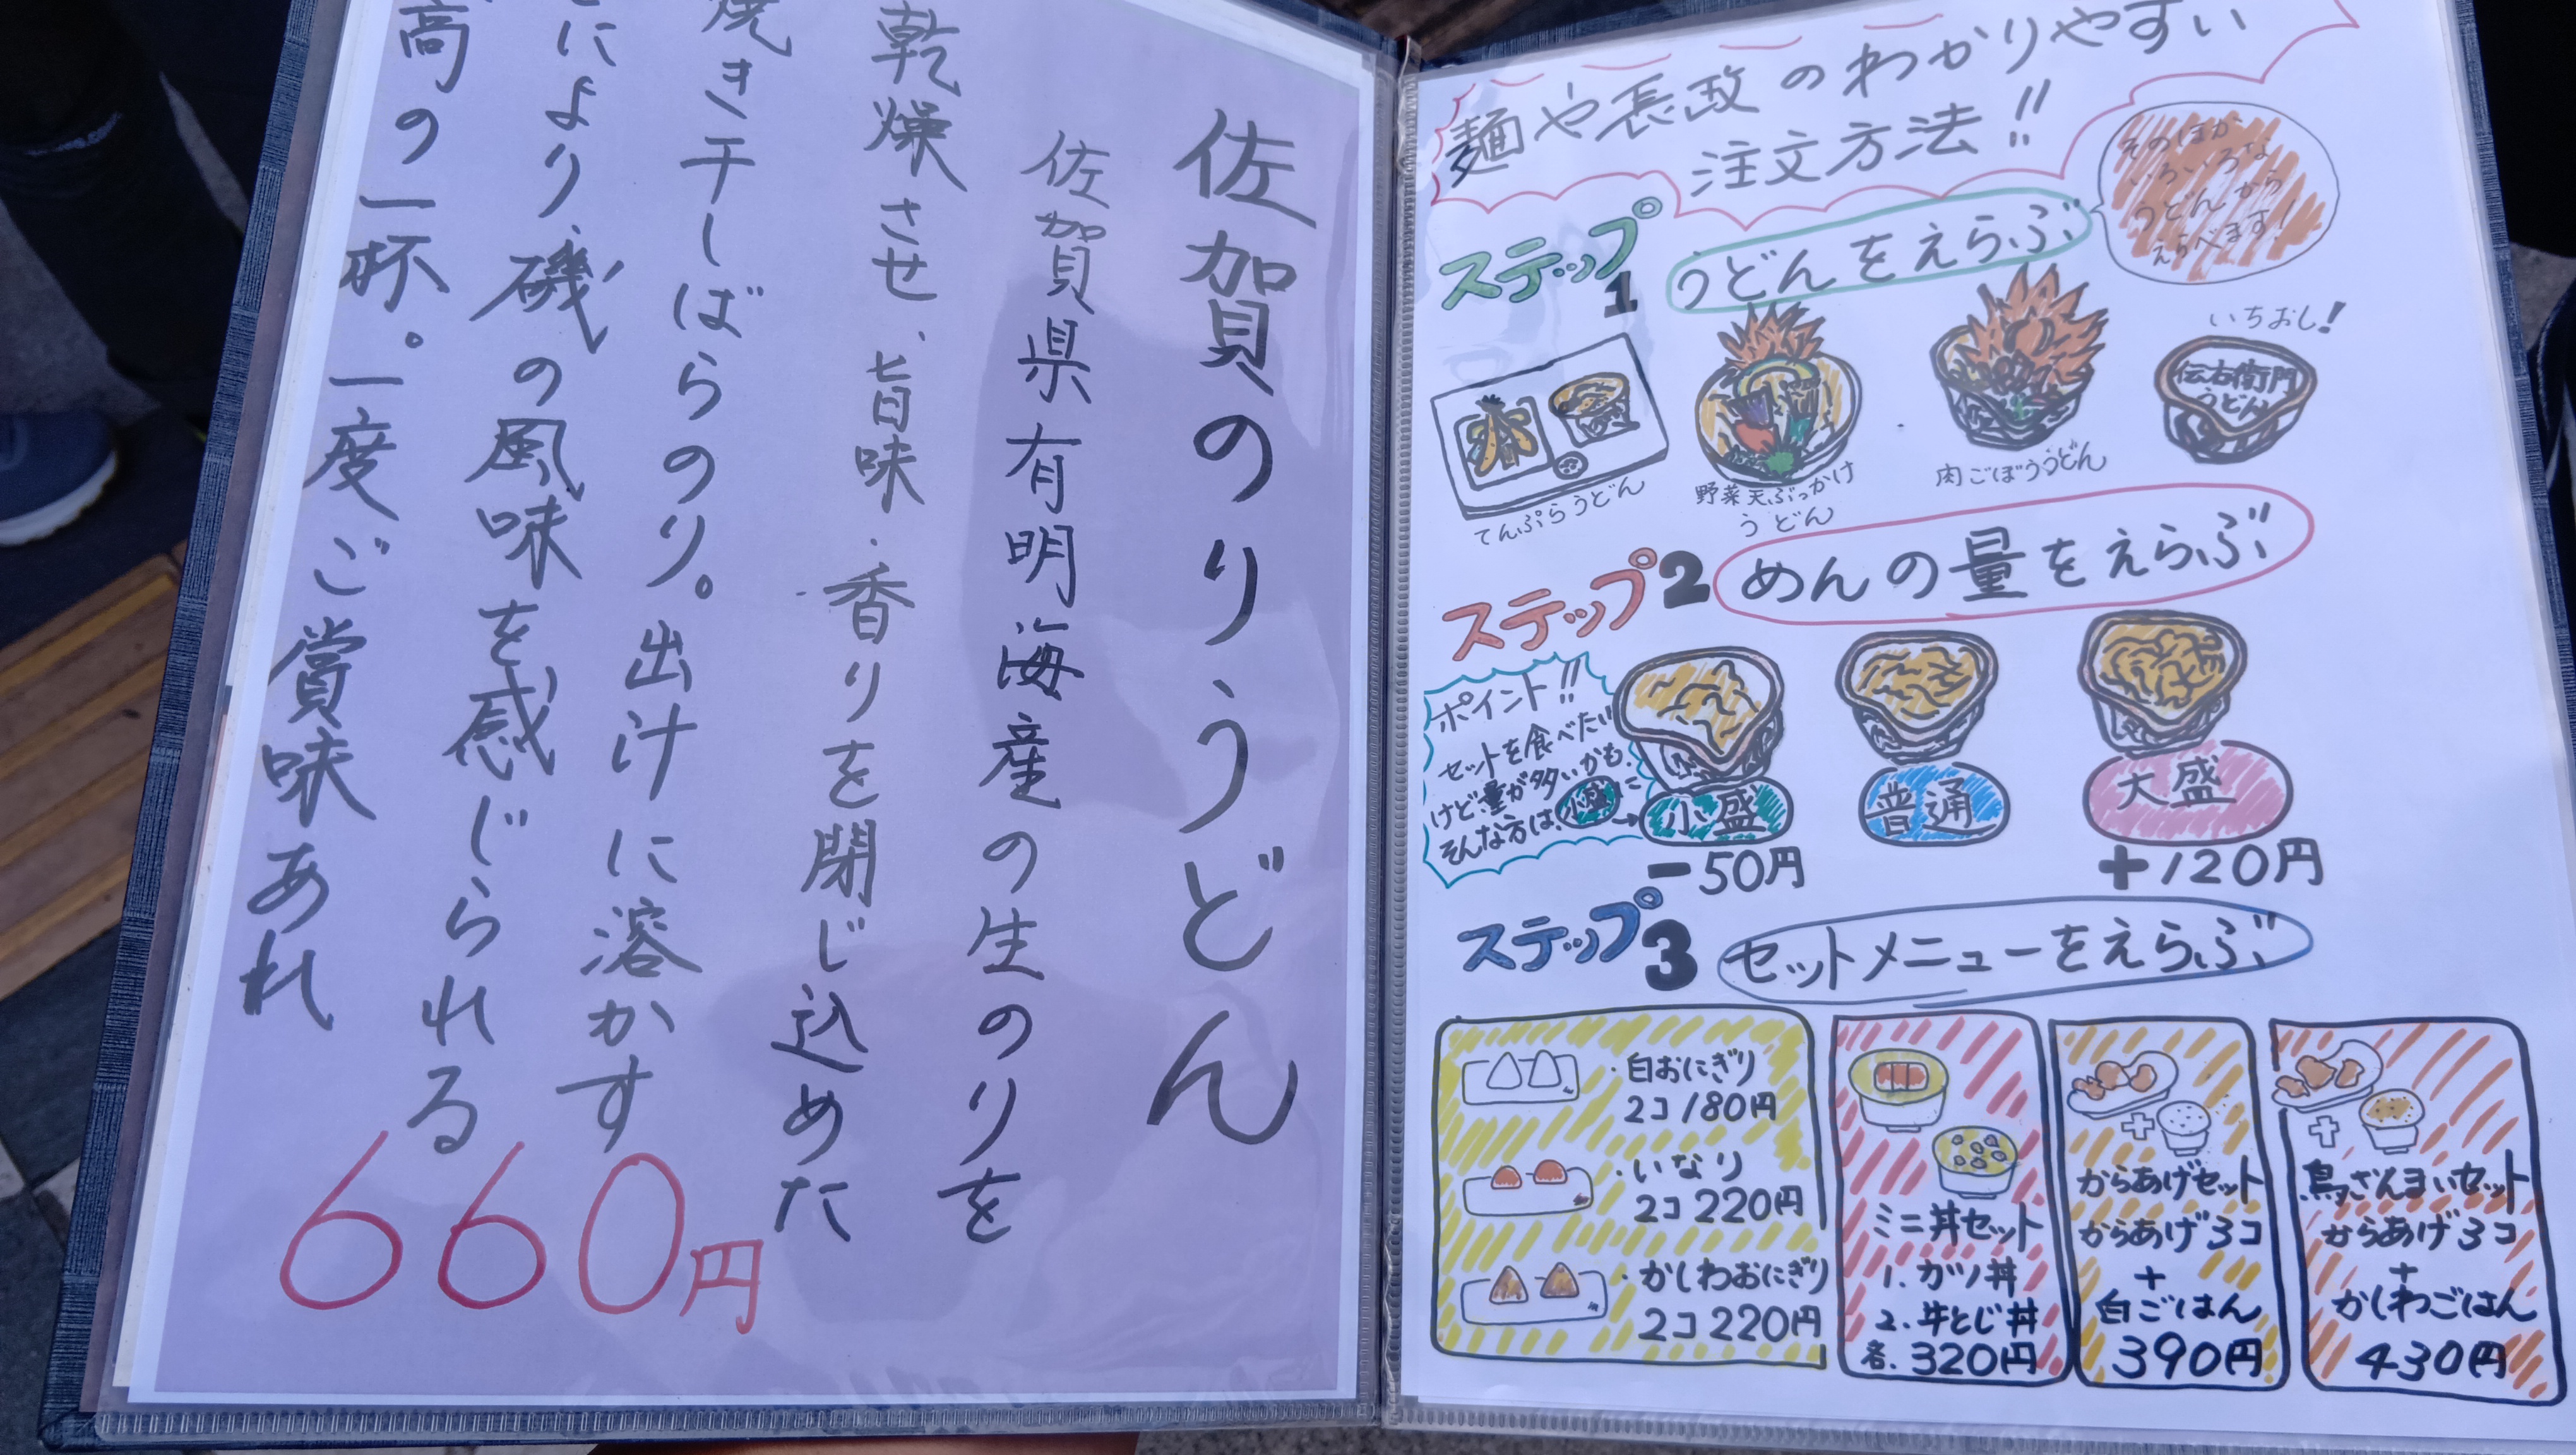 佐賀のりうどん
佐賀県有明海産の生のりを
乾燥させ、旨味・香りを閉じ込めた
焼き干しばらのり。出汁に溶かす
により、磯の風味を感じられる
高の一杯。一度ご賞味あれ
660円
麺や長政のわかりやすい
注文方法!!
ステップ1 うどんをえらぶ
そのほか
いろいろな
うどんから
えらべます!
いちおし!
伝右衛門
うどん
てんぷらうどん
野菜天ぶっかけ
うどん
肉ごぼううどん
ステップ2 めんの量をえらぶ
ポイント!!
セットを食べたい
けど量が多いかも、
そんな方は、小盛に→
小盛
-50円
普通
大盛
+120円
ステップ3 セットメニューをえらぶ
・白おにぎり
2コ180円
・いなり
2コ220円
・かしわおにぎり
2コ220円
ミニ丼セット
1. カツ丼
2. 牛とじ丼
各. 320円
+
からあげセット
からあげ3コ
+
白ごはん
390円
+
鳥ざんまいセット
からあげ3コ
+
かしわごはん
430円